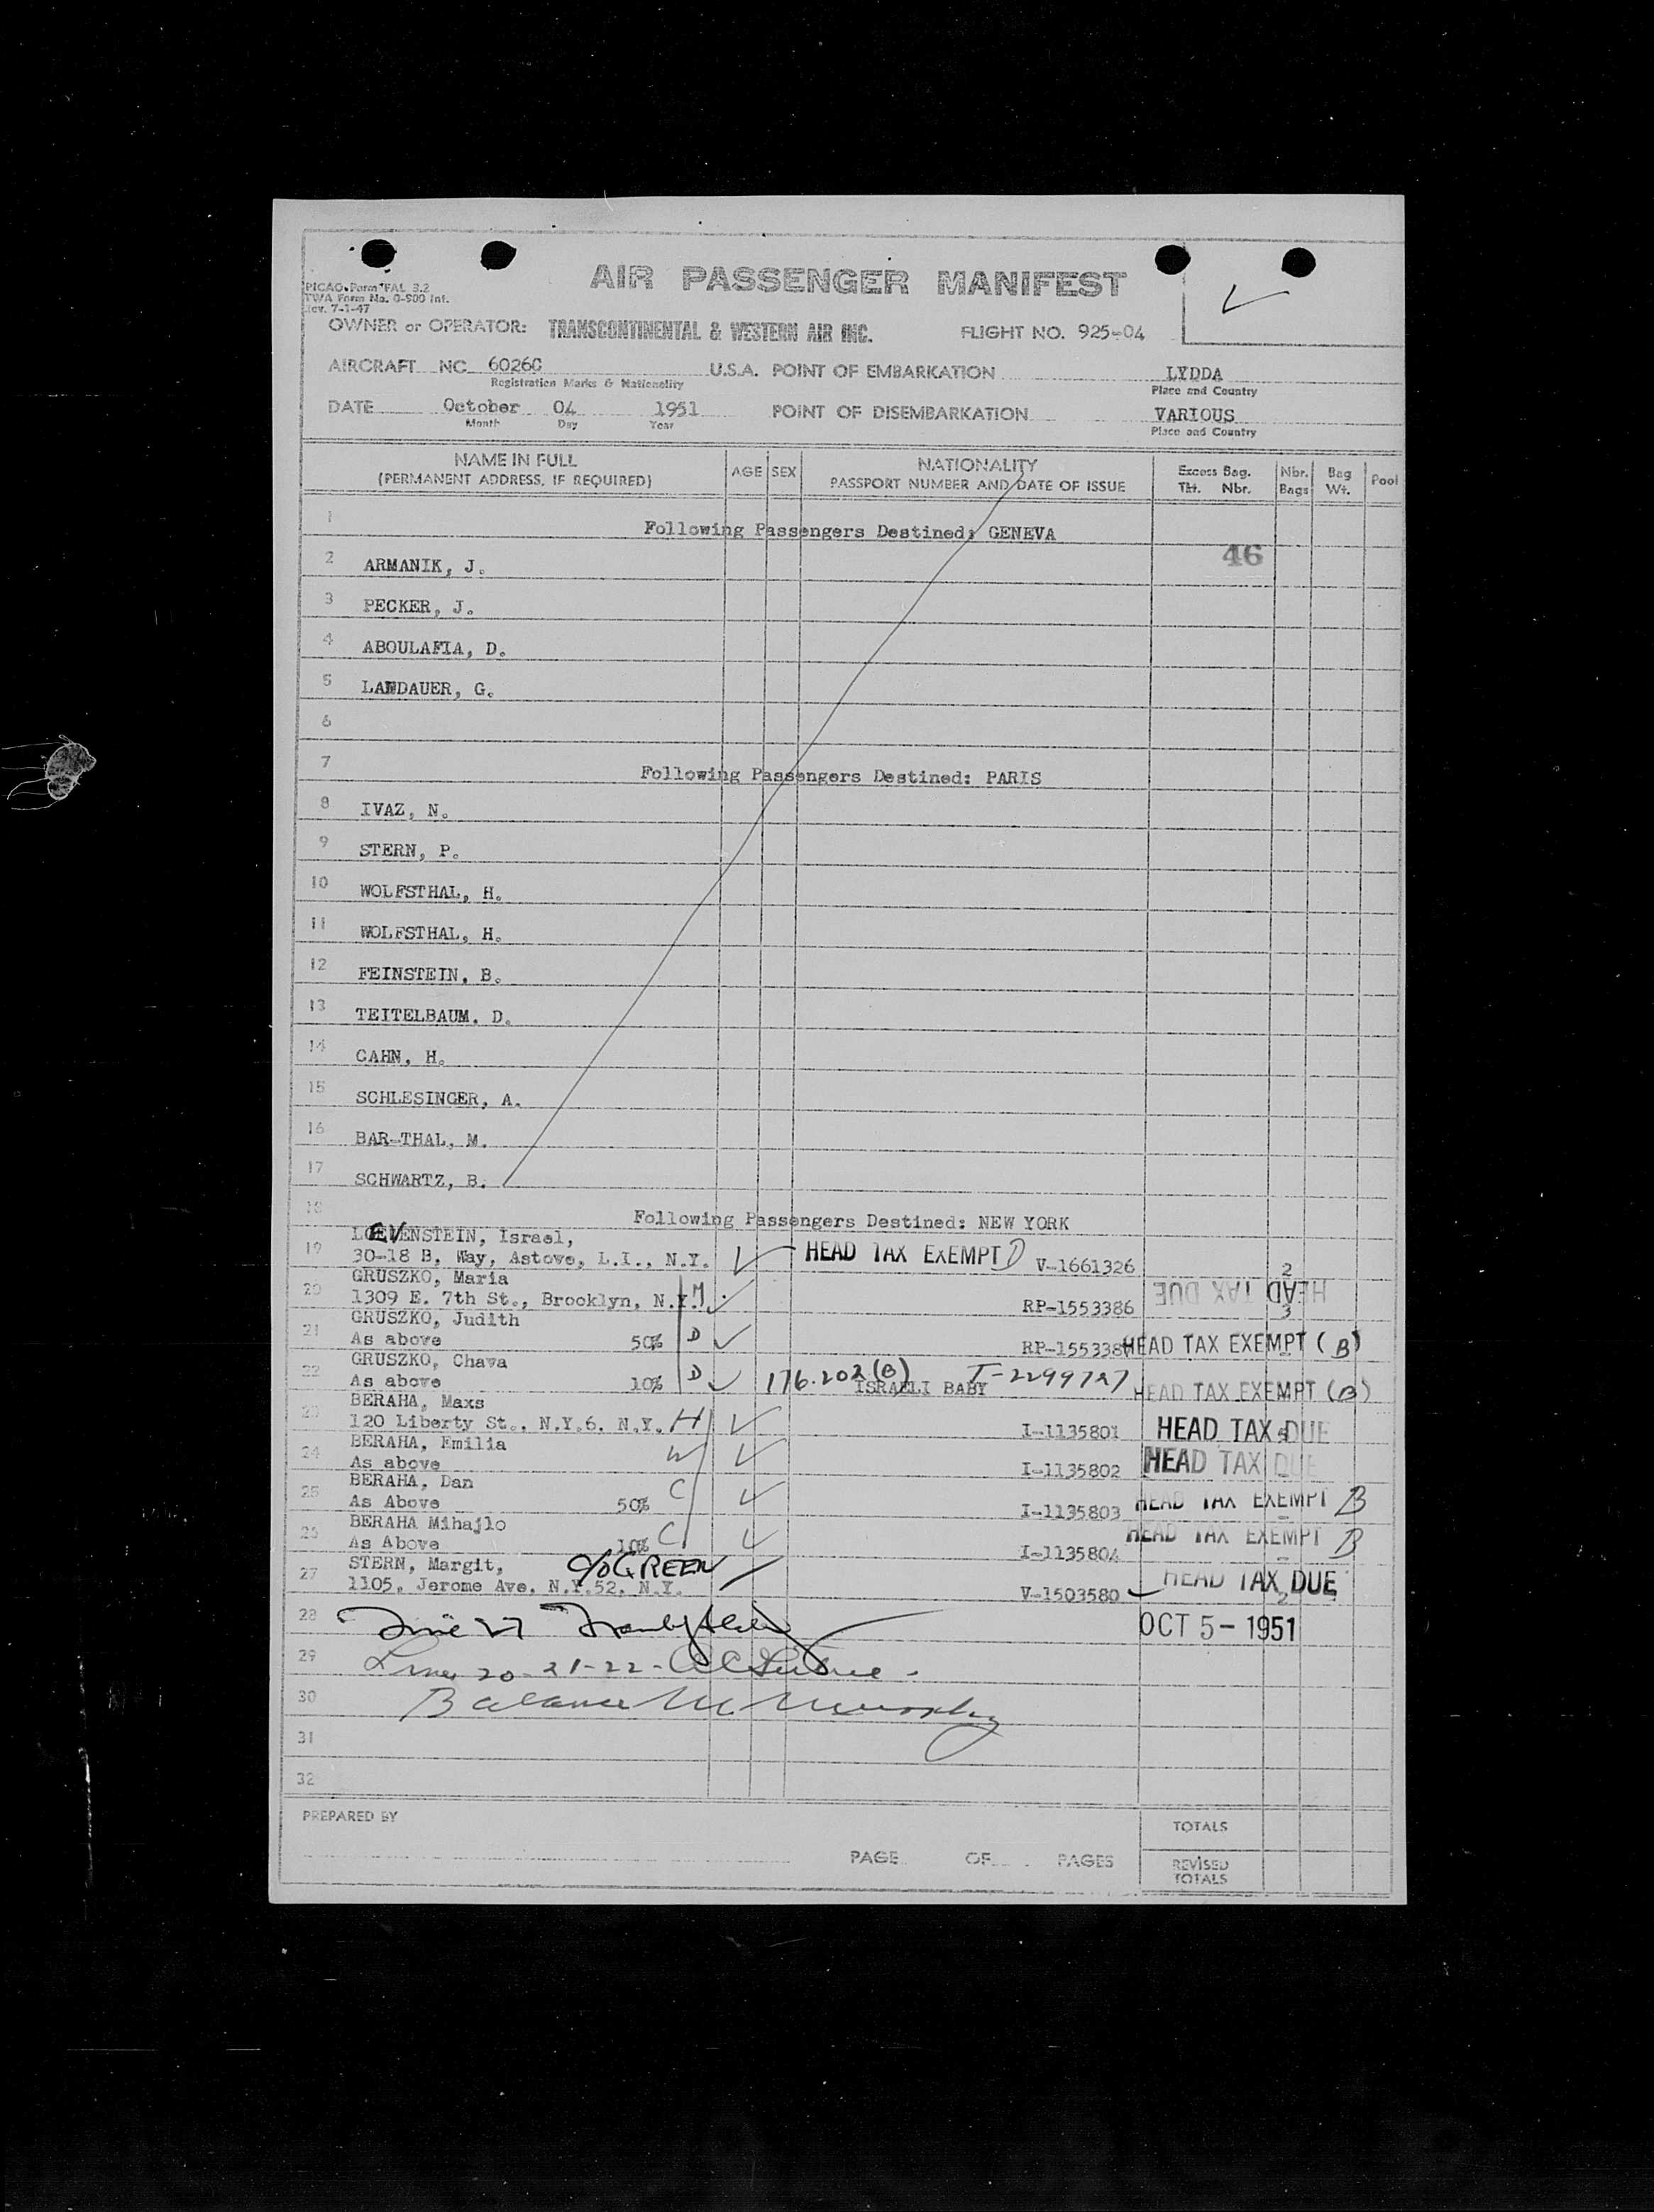 AIR PASSENGER MANIFEST
PICAO Form FAL 3.2
TWA Form No. O-500 Int.
Rev. 7-1-47
OWNER or OPERATOR: TRANSCONTINENTAL & WESTERN AIR INC. FLIGHT NO. 925-04
AIRCRAFT NC 6026C U.S.A. POINT OF EMBARKATION LYDDA
Registration Marks & Nationality Place and Country
DATE October 04 1951 POINT OF DISEMBARKATION VARIOUS
Month Day Year Place and Country
NAME IN FULL AGE SEX NATIONALITY Excess Bag. Nbr. Bag Pool
(PERMANENT ADDRESS, IF REQUIRED) PASSPORT NUMBER AND DATE OF ISSUE Tkt. Nbr. Bags Wt.
1 Following Passengers Destined: GENEVA
46
2 ARMANIK, J.
3 PECKER, J.
4 ABOULAFIA, D.
5 LANDAUER, G.
6
7 Following Passengers Destined: PARIS
8 IVAZ, N.
9 STERN, P.
10 WOLFSTHAL, H.
11 WOLFSTHAL, H.
12 FEINSTEIN, B.
13 TEITELBAUM. D.
14 CAHN, H.
15 SCHLESINGER, A.
16 BAR-THAL, M.
17 SCHWARTZ, B.
18 Following Passengers Destined: NEW YORK
LOEVENSTEIN, Israel,
19 30-18 B. Way, Astove, L.I., N.Y. HEAD TAX EXEMPT D V-1661326 2
GRUSZKO, Maria
20 1309 E. 7th St., Brooklyn, N.Y. M RP-1553386 HEAD TAX DUE 3
GRUSZKO, Judith
21 As above 50% D RP-155338 HEAD TAX EXEMPT (B)
GRUSZKO, Chava
22 As above 10% D 176.202 (B) ISRAELI BABY I-2299727 HEAD TAX EXEMPT (B)
BERAHA, Maxs
23 120 Liberty St., N.Y.6. N.Y. H I-1135801 HEAD TAX DUE
BERAHA, Emilia
24 As above W I-1135802 HEAD TAX DUE
BERAHA, Dan
25 As Above 50% C I-1135803 HEAD TAX EXEMPT B
BERAHA Mihajlo
26 As Above 10% C I-1135804 HEAD TAX EXEMPT B
STERN, Margit, c/o GREEN
27 1105, Jerome Ave. N.Y.52. N.Y. V-1503580 HEAD TAX DUE 2
28 OCT 5- 1951
29 Lines 20-21-22-
30 Balance M Murphy
31
32
PREPARED BY TOTALS
PAGE OF PAGES REVISED
TOTALS